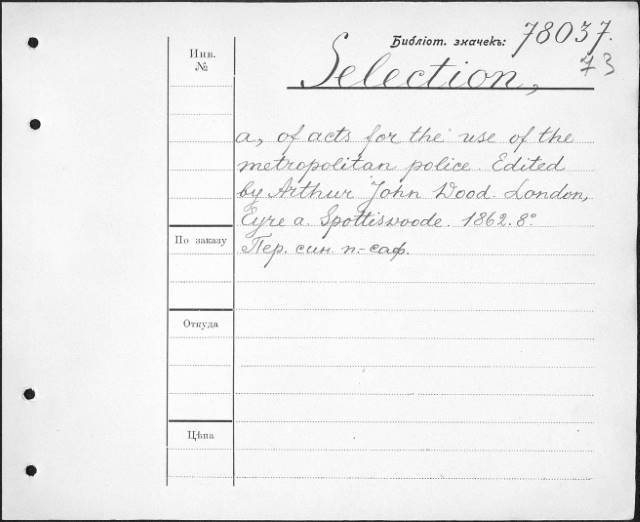 Библіот. значекъ: 78037.
73
Инв.
№
Selection,
a, of acts for the use of the
metropolitan police. Edited
by Arthur John Wood. London,
Eyre a. Spottiswoode. 1862. 8°
По заказу
Пер. син. п.-саф.
Откуда
Цѣна